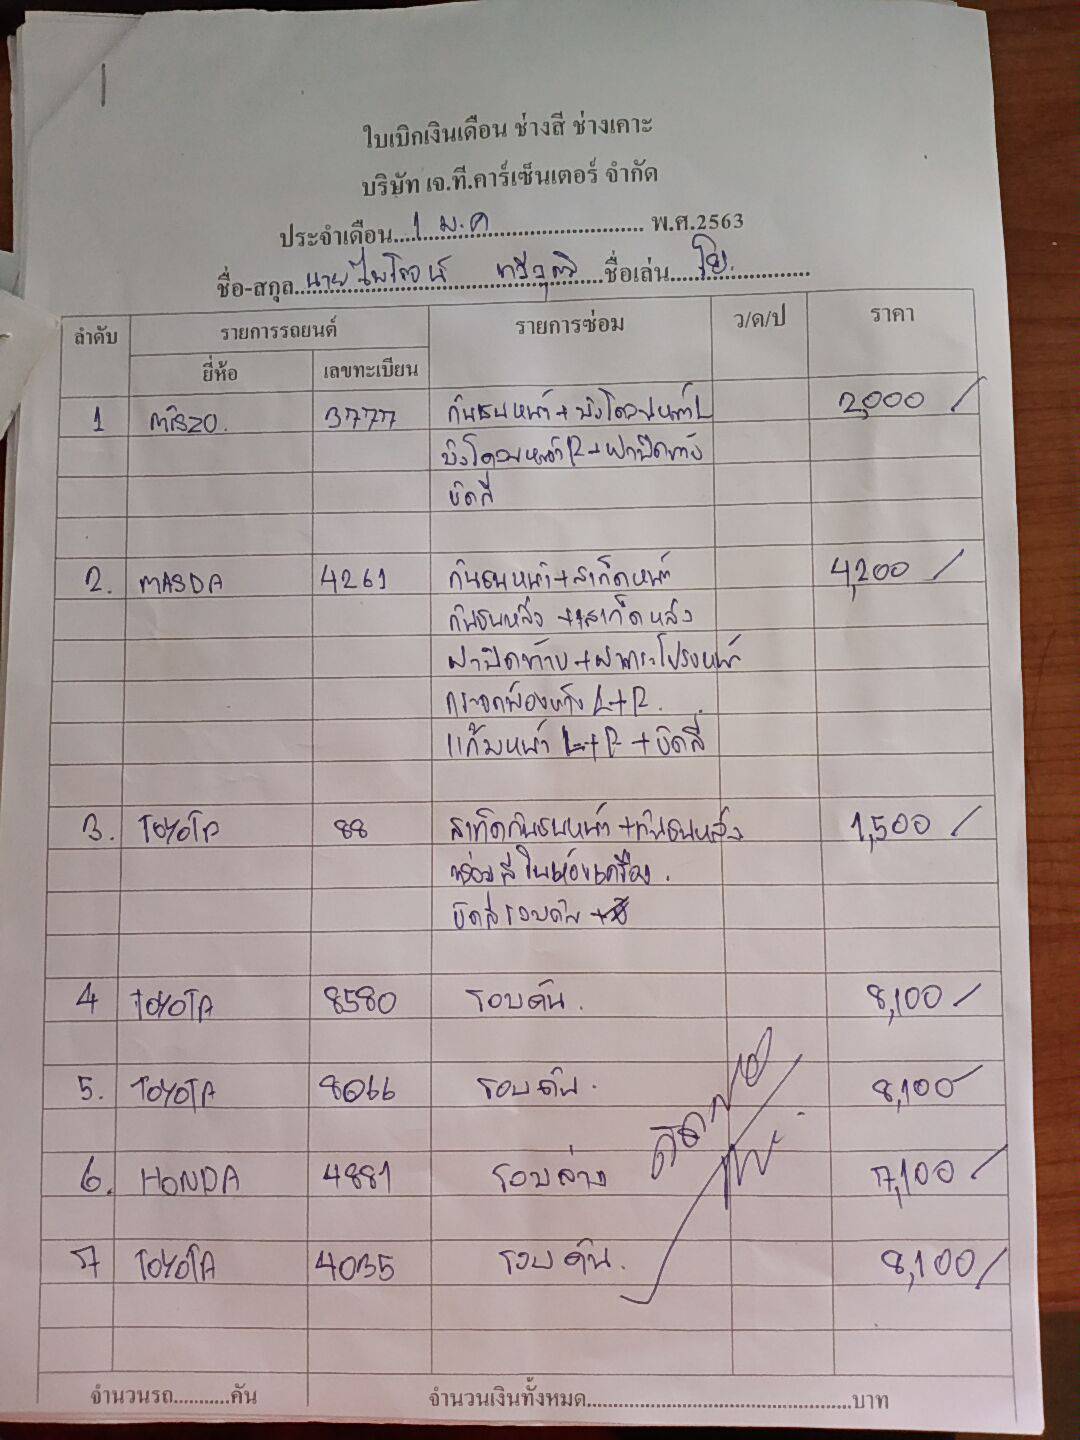 ใบเบิกเงินเดือน ช่างสี ช่างเคาะ
บริษัท เจ.ที.คาร์เซ็นเตอร์ จำกัด
ประจำเดือน....1 ม.ค.......................... พ.ศ.2563
ชื่อ-สกุล..นายไพโรจน์..............ชื่อเล่น..................
ลำดับ รายการรถยนต์ รายการซ่อม ว/ด/ป ราคา
ยี่ห้อ เลขทะเบียน
1 3777 กันชนหน้า+บังโคลนหน้าL 2,000
บังโคลนหน้า R+ฝาปิดท้าย
ขัดสี
2. MASDA 4261 กันชนหน้า+สเกิ๊ตหน้า 4,200
กันชนหลัง +สเกิ๊ตหลัง
ฝาปิดท้าย+ฝากระโปรงหน้า
กระจกมองข้าง L+R.
แก้มหน้า L+R +ขัดสี
3. TOYOTA 88 กันชนหน้า+กันชนหลัง 1,500
สีในห้องเครื่อง.
ขัดสีรอบคัน
4 TOYOTA 8580 รอบคัน. 8,100
5. TOYOTA 8066 รอบคัน. 8,100
6. HONDA 4881 รอบล่าง 7,100
7 TOYOTA 4035 รอบคัน. 8,100
จำนวนรถ...........คัน จำนวนเงินทั้งหมด...................................................บาท